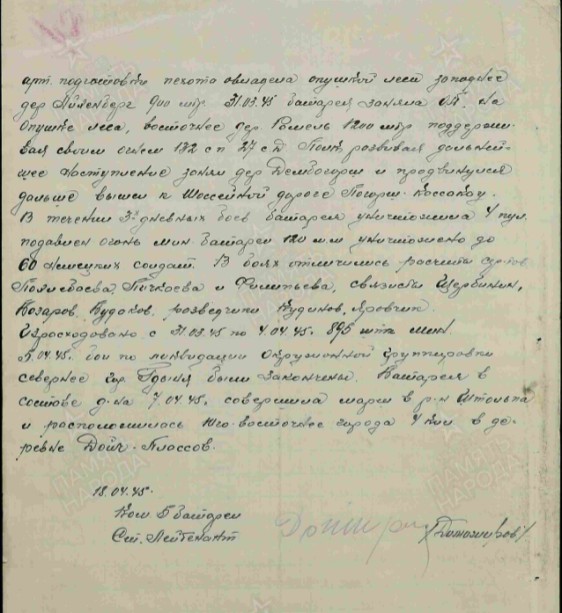 арт. подготовки пехота овладела опушкой леса западнее
дер 900 мтр 31.03.45 батарея заняла ОП. на
опушке леса, восточнее дер. Рамель 1200 мтр поддержи-
вая своим огнем 132 с п 27 с д Полк развивая дальней-
шее наступление занял дер и продвинулся
дальше вышел к Шоссейной дороге Коссакау.
В течении 3х дневных боев батарея уничтожила 4 пул.
подавлен огонь мин. батареи 120 м м уничтожено до
60 немецких солдат. В боях отличились расчеты с-тов
Пичкаева и Филипьева, связисты Щербинин,
Козаров, Кудаков, розведчики Кудинов, Яровчик.
Израсходовано с 31.03.45 по 4.04.45. 896 штук мин.
5.04.45. бои по ликвидации окруженной группировки
севернее гор. Гдыня были закончены. Батарея в
составе д-на 7.04.45. совершила марш в р-н Штольпа
и расположилась Юго-восточнее города 4 км в де-
ревне Дойч-Плассов.
18.04.45.
Ком. 5 батареи
Ст. Лейтенант
ПАМЯТЬ
НАРОДА
ПАМЯТЬ
НАРОДА